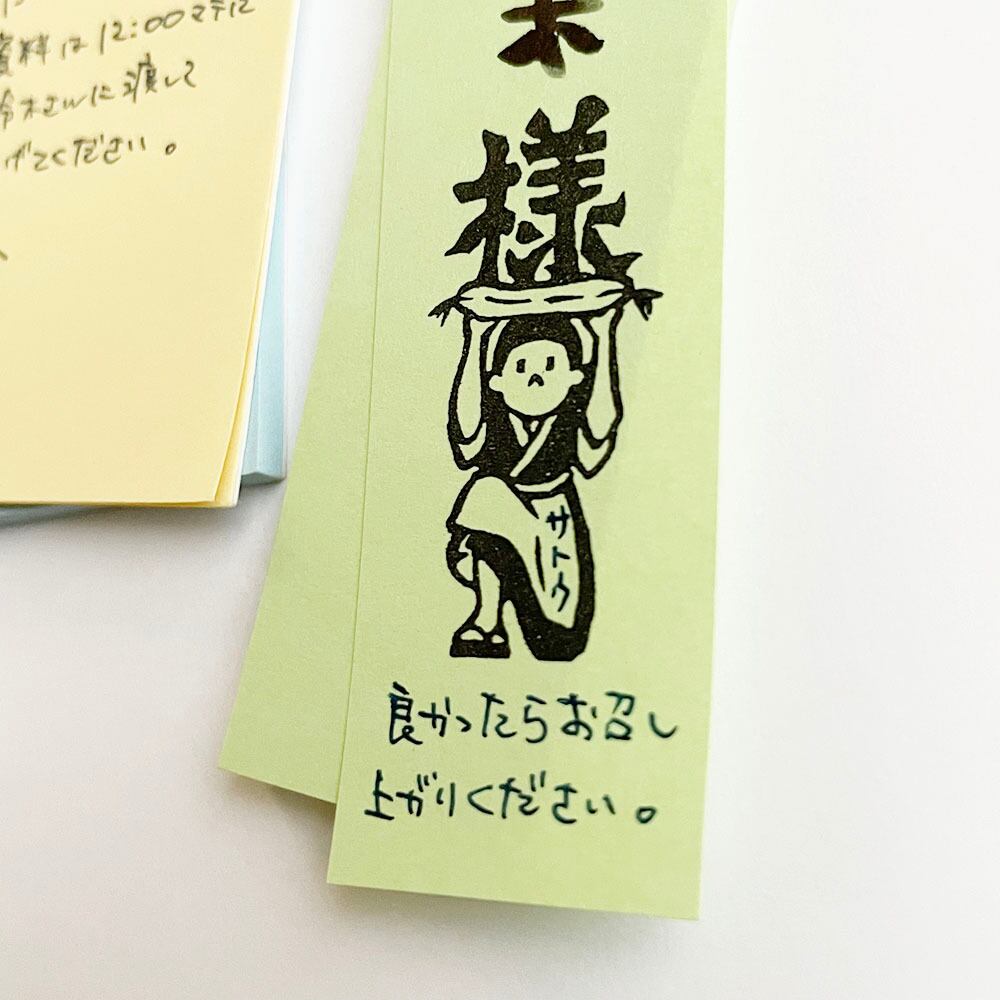 資料は12:00マデに
鈴木さんに渡して
げてください。
様
サトウ
良かったらお召し
上がりください。